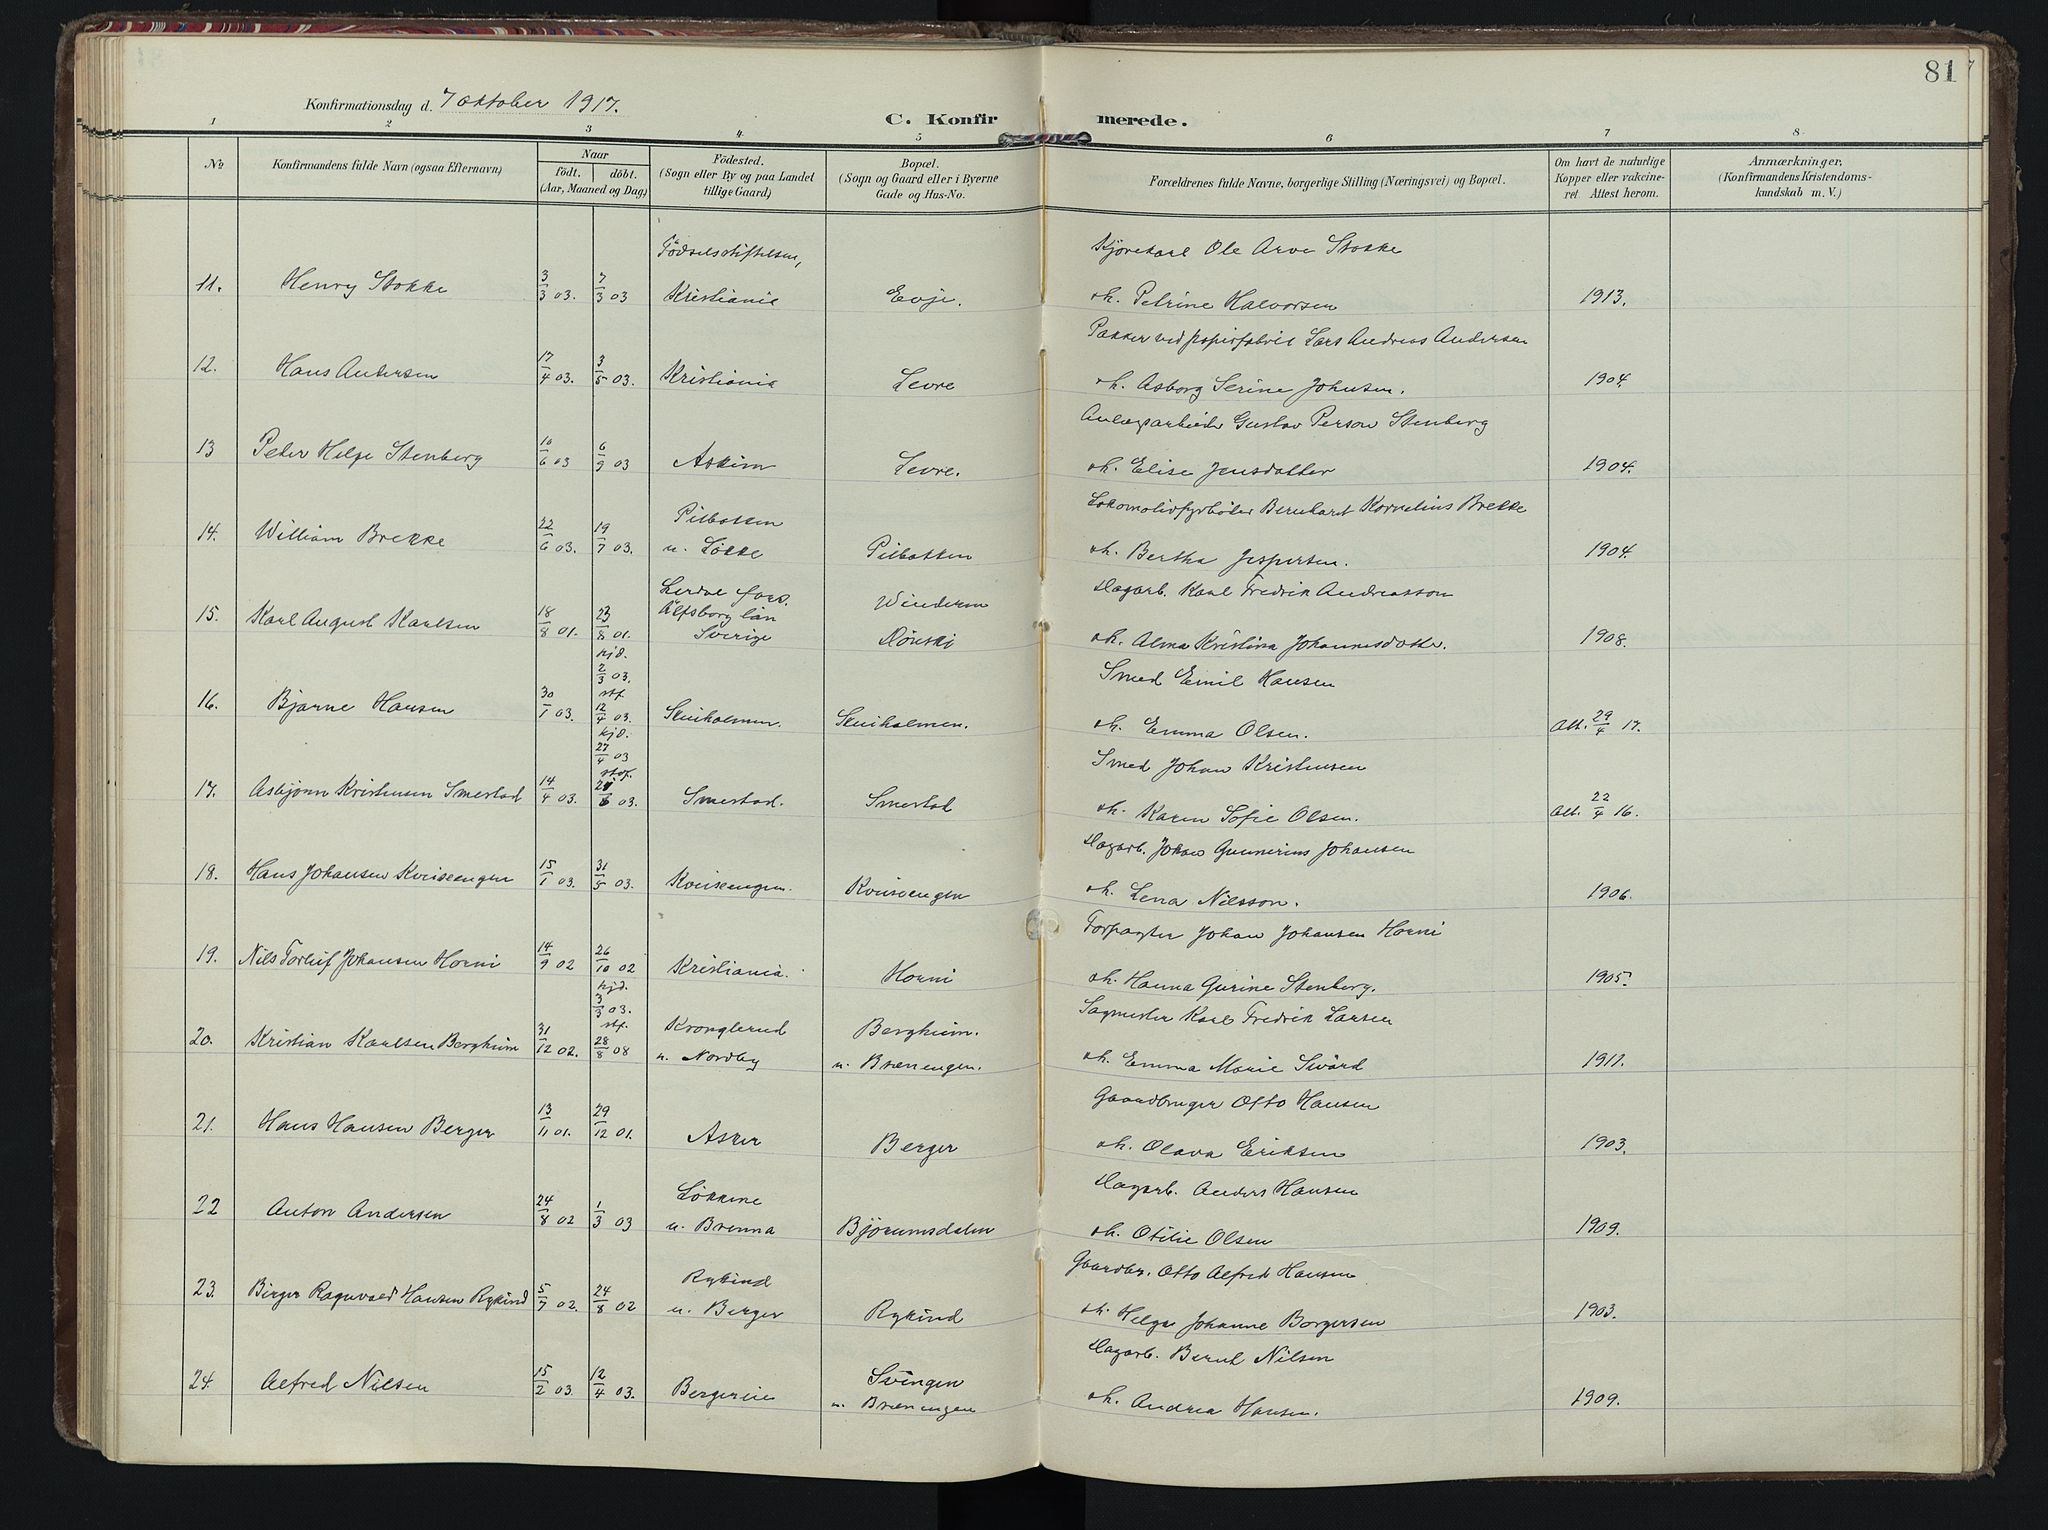 81
Konfirmationsdag d. 7 oktober 1917.
C. Konfirmerede.
1 2 3 4 5 6 7 8
No
Konfirmandens fulde Navn (ogsaa Efternavn)
Naar
födt. döbt.
(Aar, Maaned og Dag)
Födested.
(Sogn eller By og paa Landet
tillige Gaard)
Bopæl.
(Sogn og Gaard eller i Byerne
Gade og Hus-No.
Forældrenes fulde Navne, borgerlige Stilling (Næringsvei) og Bopæl.
Om havt de naturlige
Kopper eller vakcine-
ret. Attest herom.
Anmærkninger,
(Konfirmandens Kristendoms-
kundskab m. V.)
Födselsstiftelsen, Kjørekarl Ole Arve Stokke
11. Henry Stokke 3/3 03. 7/3 03 Kristiania Evje. oh. Petrine Halvorsen 1913.
Pakker ved papirfabrik Lars Andreas Andersen
12. Hans Andersen 17/4 03. 3/5 03. Kristiania Levre oh. Asborg Serine Johnsen. 1904.
Anlægsarbeider Gustav Person Stenberg
13 Peder Helge Stenberg 10/6 03 6/9 03 Askim Levre. oh. Elise Jensdatter 1904.
Pilbakken Lokomotivfyrbøder Bernhard Kornelius Brekke
14. William Brekke 22/6 03. 19/7 03. u. Løkke Pilbakken oh. Bertha Jespersen. 1904.
Lerdve fors. Winderen Dagarb. Karl Fredrik Andreasson
15. Karl August Karlsen 18/8 01. 23/8 01. Älfsborg län Sverige Dönski oh. Alma Kristina Johannesdotter. 1908.
hjd. 2/3 03. stf. Smed Emil Hansen
16. Bjarne Hansen 30/1 03. 12/4 03. Skuiholmen. Skuiholmen. oh. Emma Olsen. Att. 29/4 17.
hjd. 27/4 03 staf. Smed Johan Kristensen
17. Asbjønn Kristensen Smestad 14/4 03. 21/6 03. Smestad. Smestad oh. Karen Sofie Olsen. Att. 22/4 16.
Dagarb. Johan Gunnerius Johansen
18. Hans Johansen Kviseengen 15/1 03. 31/5 03. Kviseengen. Kviseengen oh. Lena Nilsson. 1906.
Forpagter Johan Johansen Horni
19. Nils Torleif Johansen Horni 14/9 02 26/10 02 Kristiania. Horni oh. Hanna Gurine Stenberg. 1905.
hjd. 3/3 03. stf. Kronglerud Bergheim. Sagmester Karl Fredrik Larsen
20. Kristian Karlsen Bergheim 31/12 02. 28/8 08 u. Nordby u. Brænengen. oh. Emma Marie Swärd 1911.
Gaardbruger Otto Hansen
21. Hans Hansen Berger 13/11 01. 29/12 01. Asker Berger oh. Olava Eriksen 1903.
Løkkene Dagarb. Anders Hansen
22 Anton Andersen 24/8 02 1/3 03 u. Brenna Bjørumsdalen oh. Otilie Olsen 1909.
Rykind Gaardbr. Otto Alfred Hansen
23. Birger Ragnvald Hansen Rykind 5/7 02. 24/8 02 u. Berger Rykind oh. Helga Johanne Borgersen 1903.
Svingen Dagarb. Bernt Nilsen
24. Alfred Nilsen 15/2 03. 12/4 03. Bergereie u. Brænengen oh. Andrea Hansen. 1909.